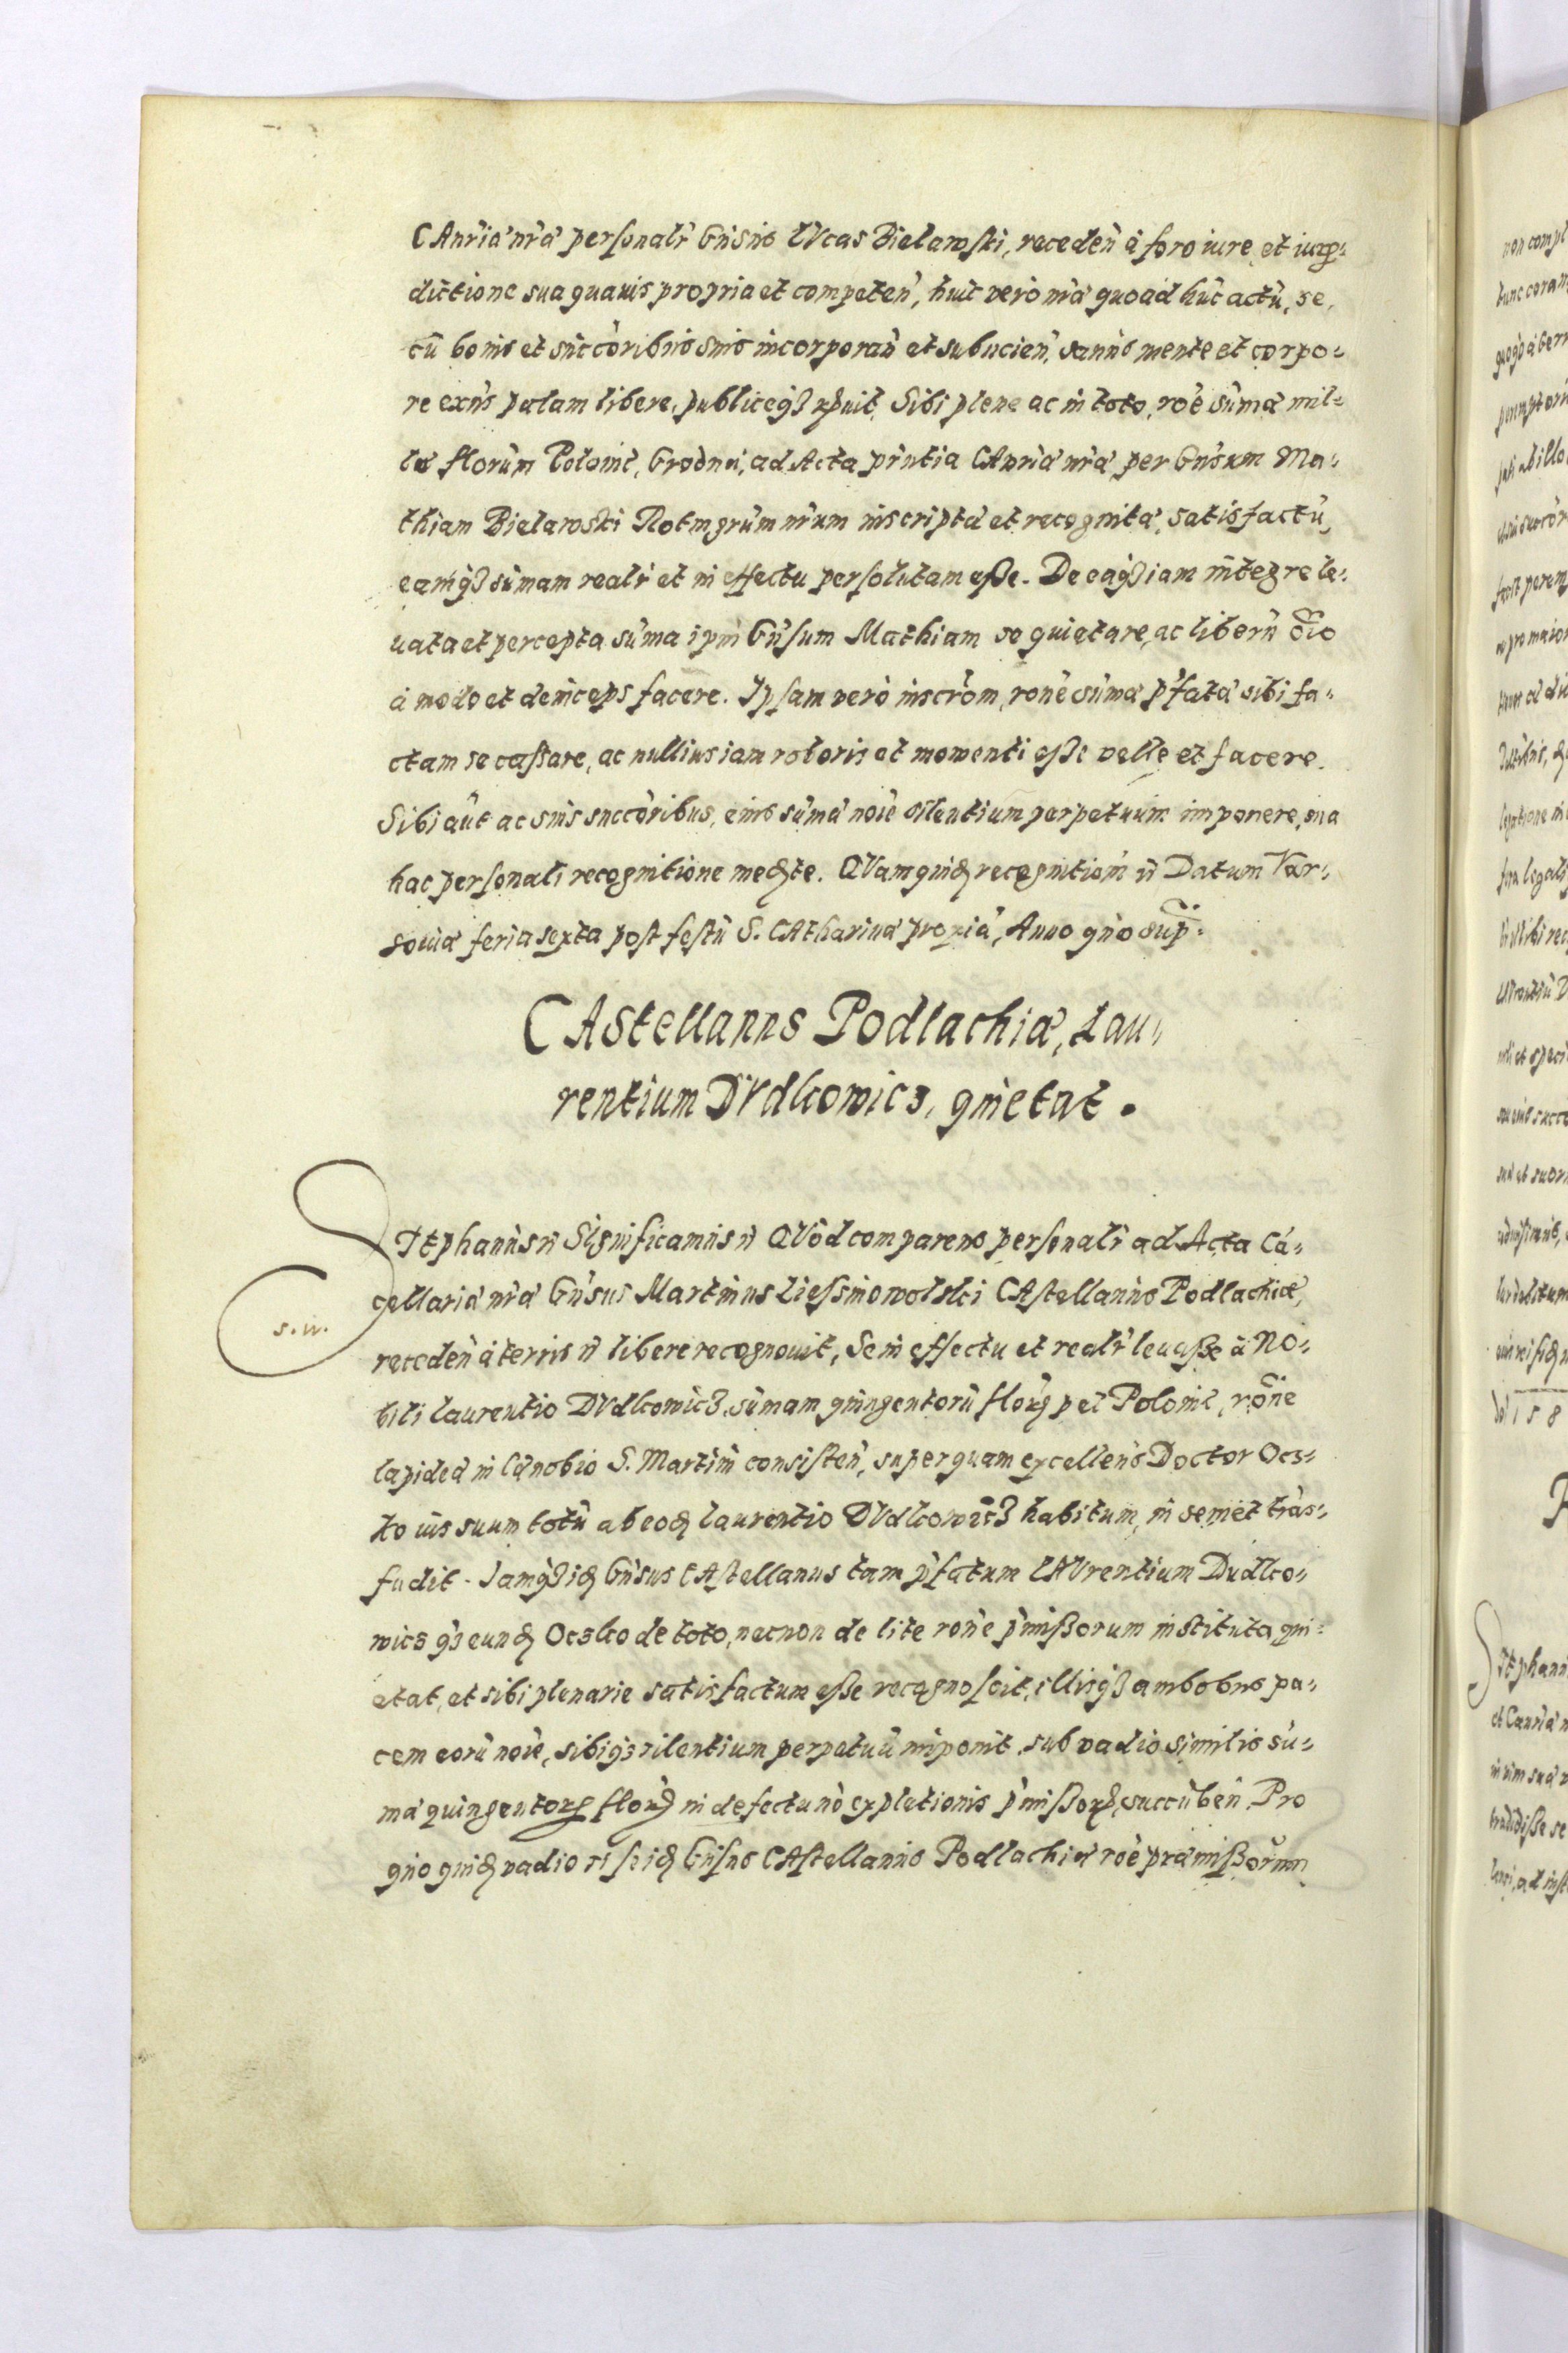 CAnria nra personalr Gnsus LVcas Bielawski, receden a foro iure et iurp-
dictione sua quauis propria et competen, huic vero nra quoad huc actu, se,
cu bonis et succoribus suis incorporan et subiicien, sanus mente et corpo-
re exns palam libere, publiceqз rpuit, Sibi plene ac in toto, roe suma mil-
le florum Polonic, Grodna, ad Acta prntia CAnria nra, per Gnsum Ma-
thiam Bielawski Rotmgrum nrum inscripta et recognita, satisfactu,
eamqз sumam realr et in effectu persolutam eße. De eaqз iam integre le-
uata et percepta suma ipm Gnsum Mathiam se quietare, ac liberu oio
a modo et deinceps facere. Ipsam vero inscrom, rone suma pfata sibi fa-
ctam se cassare, ac nullius iam roboris et momenti eße velle et facere.
Sibi aut ac suis succoribus, eius suma noie silentium perpetuum imponere, sua
hac personali recognitione medte. QVam quid recognitiom n Datum Var-
souia feria sexta post festu S. CAtharina proxia, Anno quo sup.
CAstellanus Podlachiæ, Lau-
rentium DVdkowicz, quietat.
STephanus n Significamus n QVod comparens personalr ad Acta Ca-
cellaria nra Gnsus Martinus Liesniowolski CAstellanus Podlachiæ,
s. n.
receden a terris n libere recognouit, Se in effectu et realr leuaße a No-
bili Laurentio DVdkowicз, sumam quingentoru flor pec Polonic, rone
lapidea in Canobio S. Martini consisten, super quam excellens Doctor Ocz-
ko ius suum totu ab eod Laurentio DVdkowicз habitum, in semet tras-
fudit. Iamqз id Gnsus CAstellanus tam pfatum LAVrentium Dudko-
wicz qз eund Oczko de toto, necnon de lite rone pmißorum instituta qui-
etat, et sibi plenarie satisfactum eße recognoscit, illisqз ambobus pa-
cem eoru noie, sibiqз silentium perpetuu imponit, sub vadio similis su-
ma quingentor flor in defectu no expletionis pmißor, succuben. Pro
quo quid vadio si se id Gnsus CAstellanus Podlachia roe præmißorum